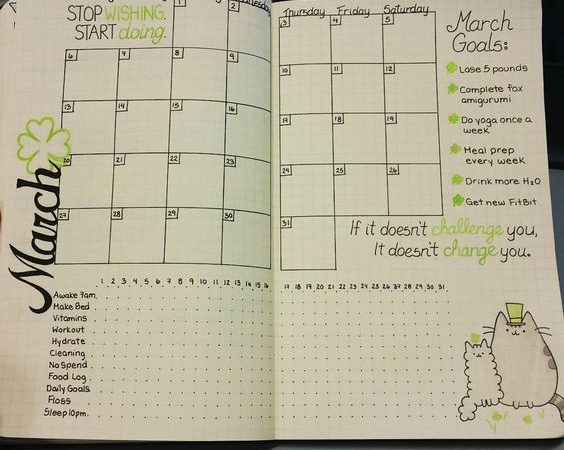 STOP WISHING.
START doing.
1 2
6 7 8 9
13 14 15 16
20 21 22 23
27 28 29 30
March
Thursday Friday Saturday
3 4 5
10 11 12
17 18 19
24 25 26
31
March
Goals:
Lose 5 pounds
Complete fox
amigurumi
Do yoga once a
week
Meal prep
every week
Drink more H₂O
Get new FitBit
If it doesn't challenge you,
It doesn't change you.
1 2 3 4 5 6 7 8 9 10 11 12 13 14 15 16 17 18 19 20 21 22 23 24 25 26 27 28 29 30 31
Awake 7am
Make Bed
Vitamins
Workout
Hydrate
Cleaning
No Spend
Food Log
Daily Goals
Floss
Sleep 10pm